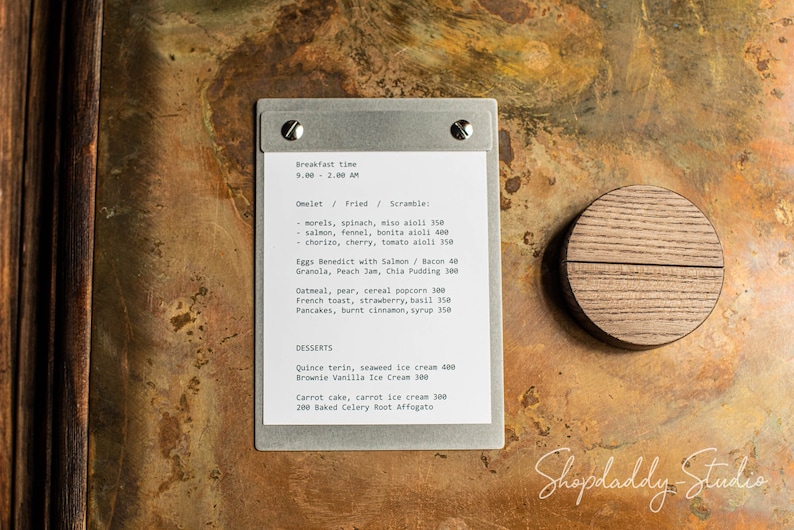 Breakfast time
9.00 - 2.00 AM
Omelet / Fried / Scramble:
- morels, spinach, miso aioli 350
- salmon, fennel, bonita aioli 400
- chorizo, cherry, tomato aioli 350
Eggs Benedict with Salmon / Bacon 40
Granola, Peach Jam, Chia Pudding 300
Oatmeal, pear, cereal popcorn 300
French toast, strawberry, basil 350
Pancakes, burnt cinnamon, syrup 350
DESSERTS
Quince terin, seaweed ice cream 400
Brownie Vanilla Ice Cream 300
Carrot cake, carrot ice cream 300
200 Baked Celery Root Affogato
Shopdaddy-Studio